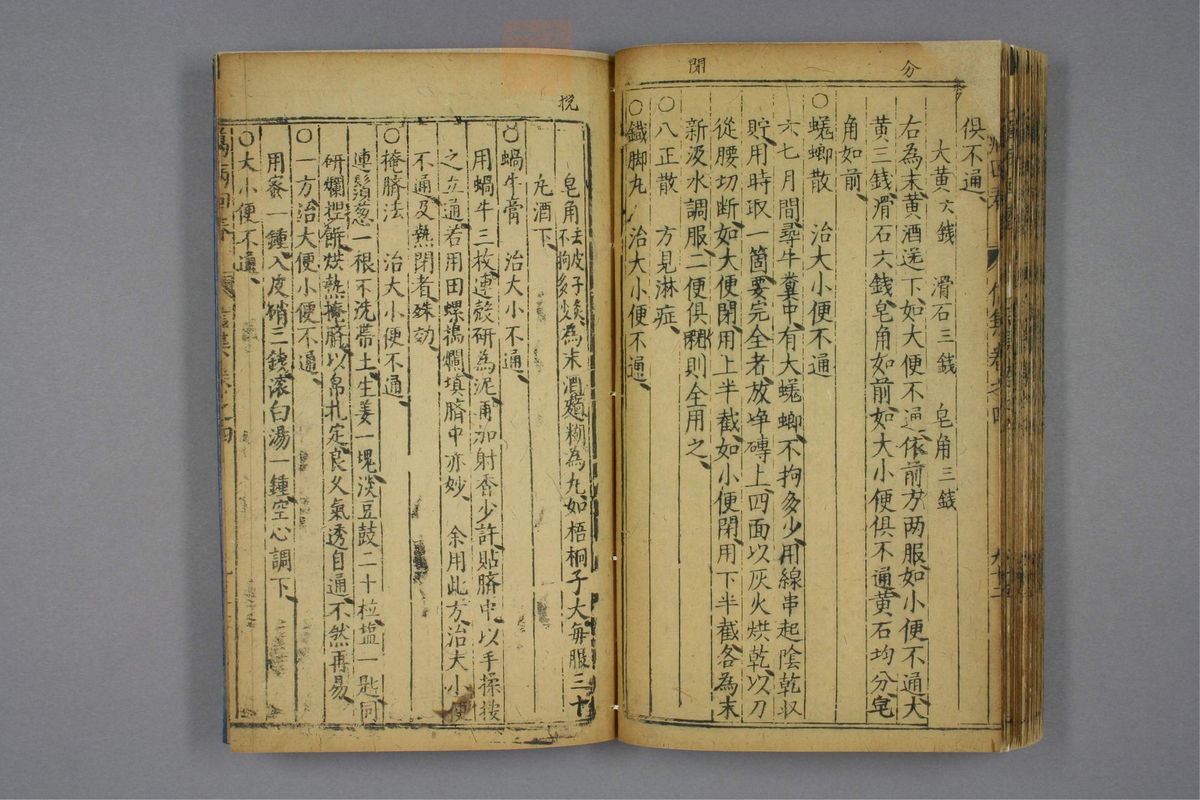 分
閉
俱不通
大黃六錢 滑石三錢 皂角三錢
右為末黃酒送下如大便不通依前方两服如小便不通大
黃三錢滑石六錢皂角如前如大小便俱不通黃石均分皂
角如前
○蜣螂散 治大小便不通
六七月間尋牛糞中有大蜣螂不拘多少用線串起陰乾収
貯用時取一箇要完全者放净磚上四面以灰火烘乾以刀
從腰切断如大便閉用上半截如小便閉用下半截各為末
新汲水調服二便俱閉則全用之
○八正散 方見淋症
○鐵脚丸 治大小便不通
挽
皂角去皮子不拘多為末酒麵糊為丸如梧桐子大每服三十
丸酒下
○蝸牛膏 治大小不通
用蝸牛三枚連殼研為泥再加射香少許貼臍中以手揉按
之立通若用田螺搗爛填臍中亦妙 余用此方治大小便
不通及熱閉者殊効
○掩臍法 治大小便不通
連鬚葱一根不洗帯土生姜一塊淡豆鼓二十粒塩一匙同
研爛捏餅烘熱掩臍以帛扎定良久氣透自通不然再易
○一方治大便小便不通
用蜜一鍾入皮硝三錢滚白湯一鍾空心調下
○大小便不通